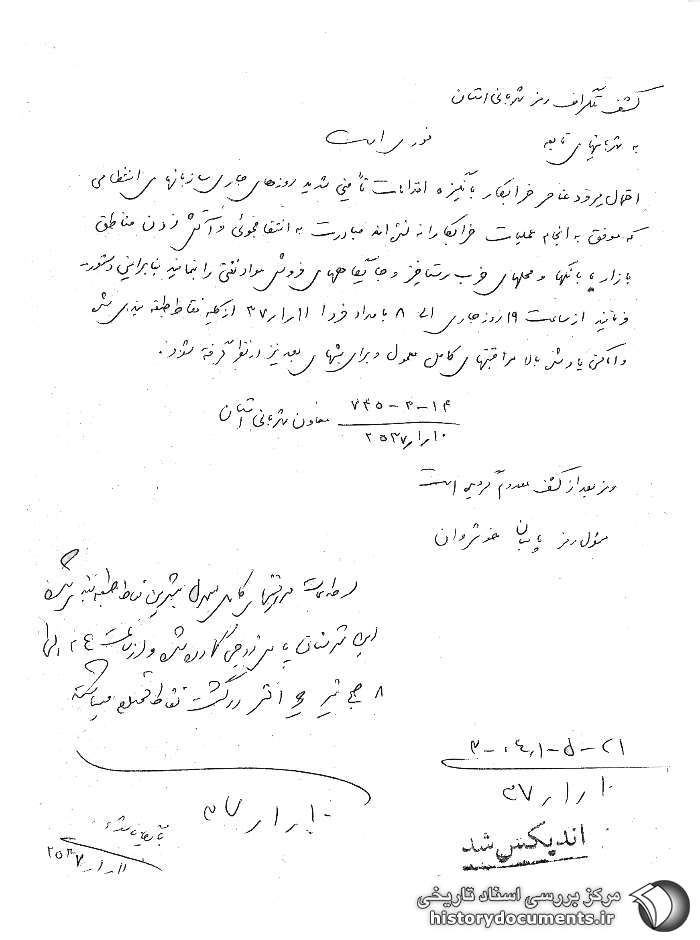 کشف تلگراف رمز شهربانی استان
به شهربانیهای تابعه فوری است
احتمال میرود عناصر خرابکار با انگیزه اقدامات تأمینی شدید روزهای جاری سازمانهای انتظامی
که موفق به انجام عملیات خرابکارانه نشده‌اند مبادرت به انتقامجوئی و آتش زدن مناطق
بازار یا بانکها و محلهای حزب رستاخیز و جایگاههای فروش مواد نفتی را بنمایند بنابراین دستور
فرمائید از ساعت ۱۹ روز جاری الی ۸ بامداد فردا ۱۱/۱/۳۷ از کلیه نقاط طبقه بندی شده
و اماکن یاد شده بالا مراقبتهای کامل معمول و برای شبهای بعد نیز در نظر گرفته شود.
۱۴-۳-۷۳۵
معاون شهربانی استان
۱۰/۱/۲۵۳۷
رمز بعد از کشف معدوم گردیده است
مسئول رمز پاسبان خوشروان
مراقبتهای کامل معمول نقاط طبقه بندی شده
این شهرستان و از ساعت ۲۴ الی
۸ صبح نیز افسر گشت نقاط
۲۱-۵-۳۰۴۱
۱۰/۱/۳۷
۱۰/۱/۳۷
اندیکس شد
۱۱/۱/۲۵۳۷
مرکز بررسی اسناد تاریخی
historydocuments.ir